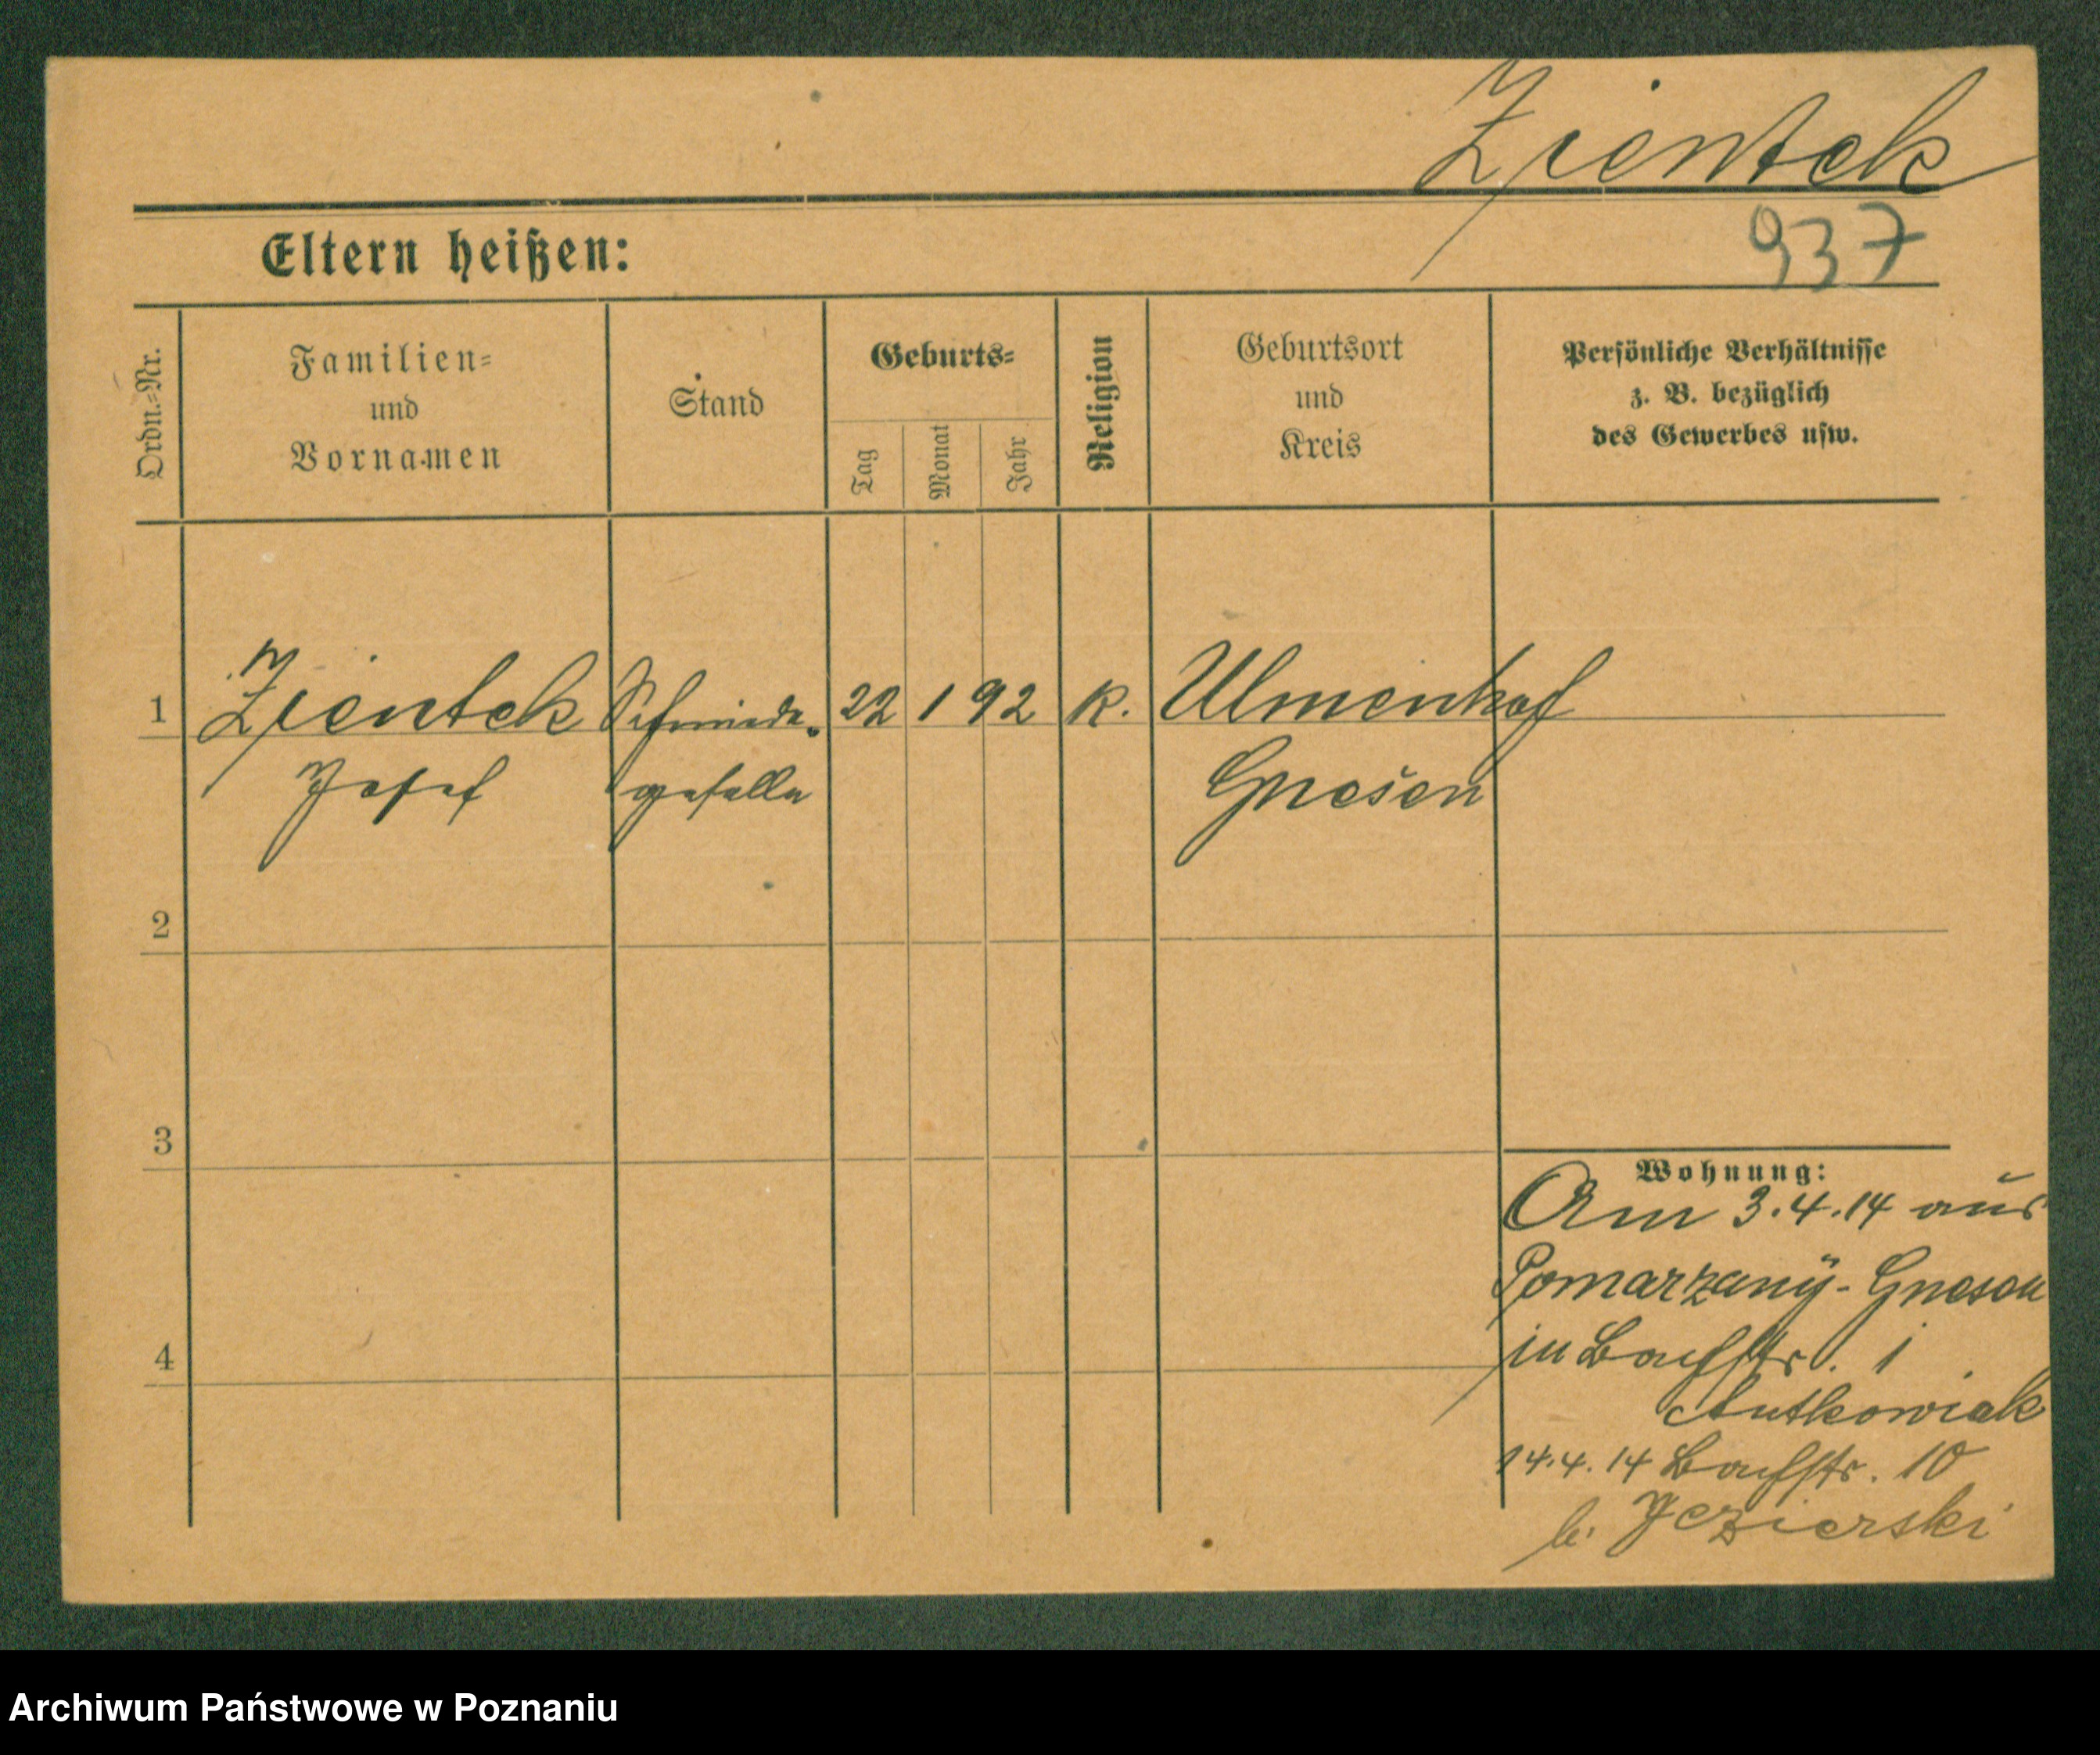 Zientek
Eltern heißen:
937
Ordn.=Nr.
Familien=
und
Vornamen
Stand
Geburts=
Tag
Monat
Jahr
Religion
Geburtsort
und
Kreis
Persönliche Verhältnisse
z. B. bezüglich
des Gewerbes usw.
1 Zientek Schmiede- 22 1 92 K. Ulmenhof
Josef geselle Gnesen
2
3
4
Wohnung:
Am 3.4.14 aus
Pomarzany - Gnesen
in 1
Antkowiak
14.4.14 10
b. Jezierski
Archiwum Państwowe w Poznaniu